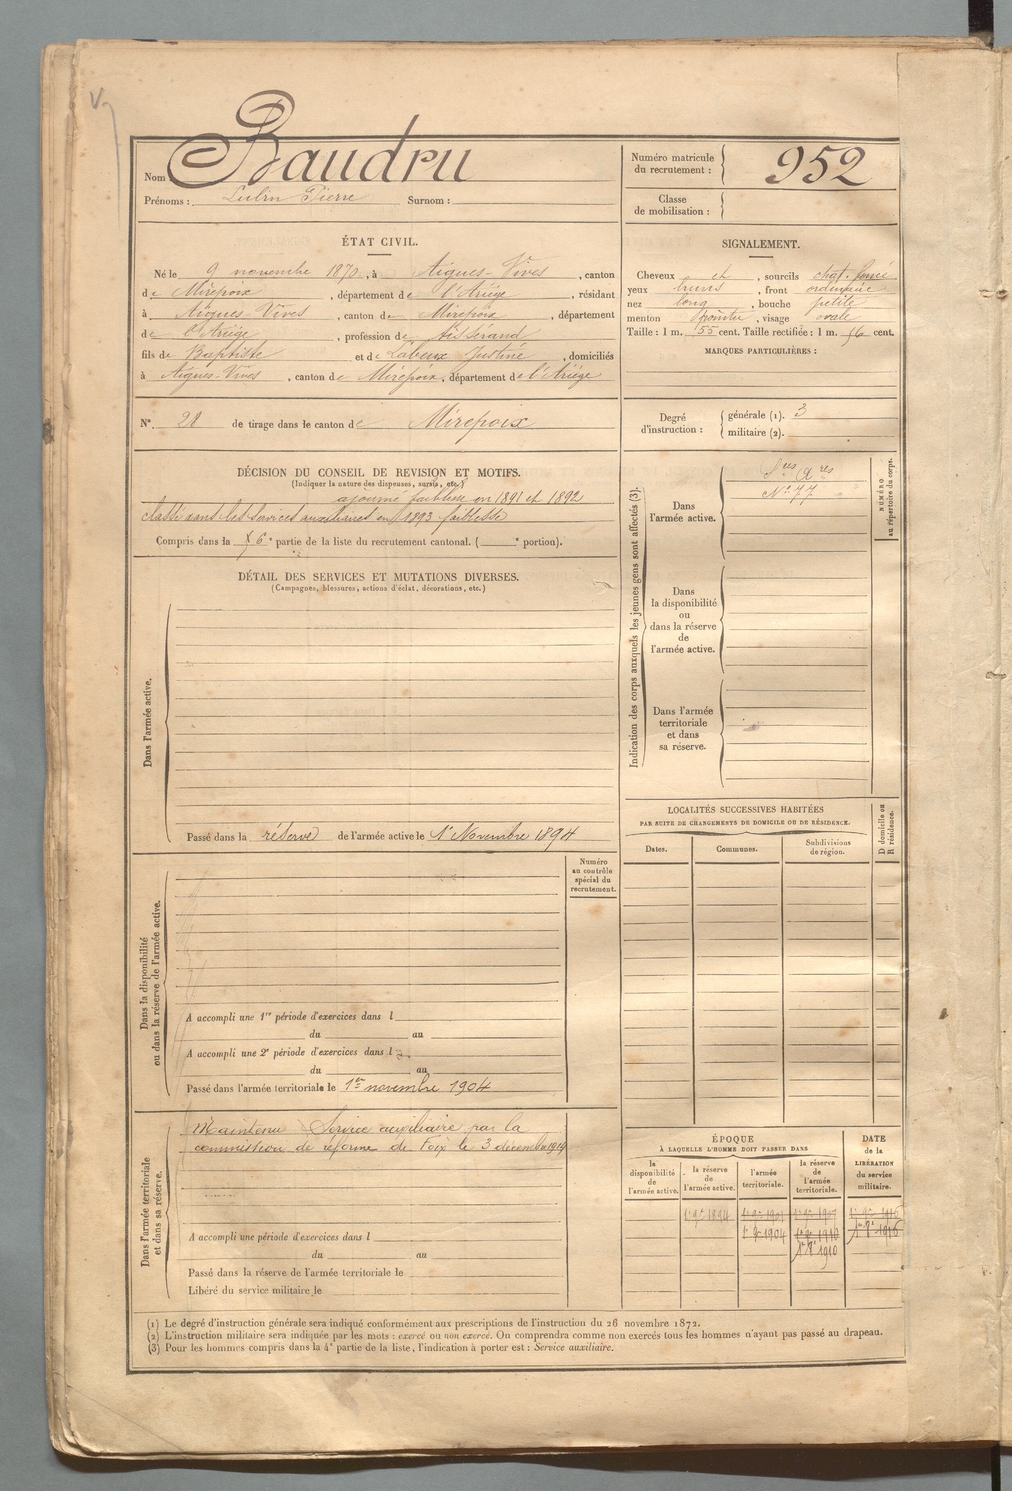 Nom Baudru
Prénoms : Lubin Pierre Surnom :
Numéro matricule du recrutement : 952
Classe de mobilisation :
ÉTAT CIVIL.
Né le 9 novembre 1870, à Aigues-Vives, canton
de Mirepoix, département de l'Ariège, résidant
à Aigues-Vives, canton de Mirepoix, département
de l'Ariège, profession de tisserand
fils de Baptiste et de Labeur Justine, domiciliés
à Aigues-Vives, canton de Mirepoix, département de l'Ariège
SIGNALEMENT.
Cheveux et, sourcils chat. foncé
yeux bruns, front ordinaire
nez long, bouche petite
menton pointu, visage ovale
Taille : 1 m. 55 cent. Taille rectifiée : 1 m. 56 cent.
MARQUES PARTICULIÈRES :
N° 28 de tirage dans le canton de Mirepoix
Degré d'instruction :
générale (1). 3
militaire (2).
DÉCISION DU CONSEIL DE REVISION ET MOTIFS.
(Indiquer la nature des dispenses, sursis, etc.)
ajourné faiblesse en 1891 et 1892
classé dans les services auxiliaires en 1893 faiblesse
Compris dans la 6e partie de la liste du recrutement cantonal. ( e portion).
DÉTAIL DES SERVICES ET MUTATIONS DIVERSES.
(Campagnes, blessures, actions d'éclat, décorations, etc.)
Dans l'armée active.
Passé dans la réserve de l'armée active le 1er Novembre 1894
Indication des corps auxquels les jeunes gens sont affectés (3).
Dans l'armée active.
Ses Ares
N° 77
Dans la disponibilité ou dans la réserve de l'armée active.
Dans l'armée territoriale et dans sa réserve.
NUMÉRO au répertoire du corps.
LOCALITÉS SUCCESSIVES HABITÉES
PAR SUITE DE CHANGEMENTS DE DOMICILE OU DE RÉSIDENCE.
Dates. Communes. Subdivisions de région.
D domicile ou R résidence.
Dans la disponibilité ou dans la réserve de l'armée active.
Numéro au contrôle spécial du recrutement.
A accompli une 1re période d'exercices dans l
du au
A accompli une 2e période d'exercices dans l
du au
Passé dans l'armée territoriale le 1er novembre 1904
Dans l'armée territoriale et dans sa réserve.
Maintenu Service auxiliaire par la
commission de réforme de Foix le 3 décembre 1914
A accompli une période d'exercices dans l
du au
Passé dans la réserve de l'armée territoriale le
Libéré du service militaire le
ÉPOQUE
À LAQUELLE L'HOMME DOIT PASSER DANS
la disponibilité de l'armée active.
la réserve de l'armée active.
l'armée territoriale.
la réserve de l'armée territoriale.
DATE de la LIBÉRATION du service militaire.
1er 9bre 1894 1er 9bre 1901 1er 9bre 1907 1er 9bre 1916
1er 9bre 1904 1er 9bre 1910 1er 8bre 1916
1er 8bre 1910
(1) Le degré d'instruction générale sera indiqué conformément aux prescriptions de l'instruction du 26 novembre 1872.
(2) L'instruction militaire sera indiquée par les mots : exercé ou non exercé. On comprendra comme non exercés tous les hommes n'ayant pas passé au drapeau.
(3) Pour les hommes compris dans la 4e partie de la liste, l'indication à porter est : Service auxiliaire.